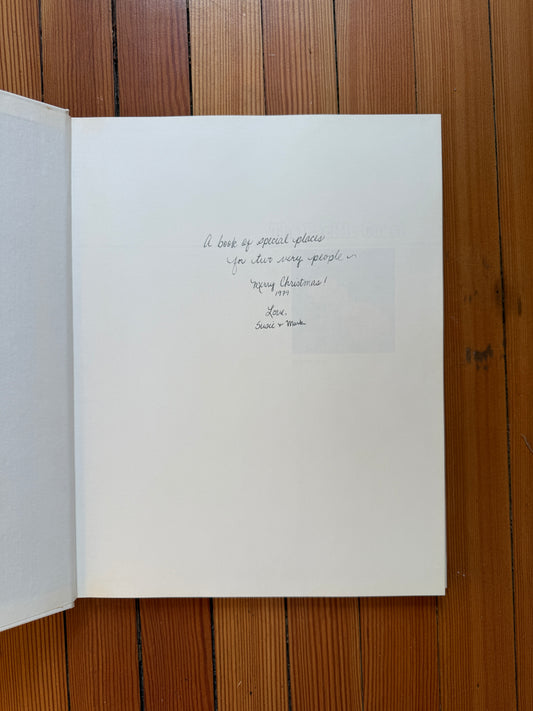 A book of special places
for two very people
Merry Christmas!
1979
Love,
Susie + Mark